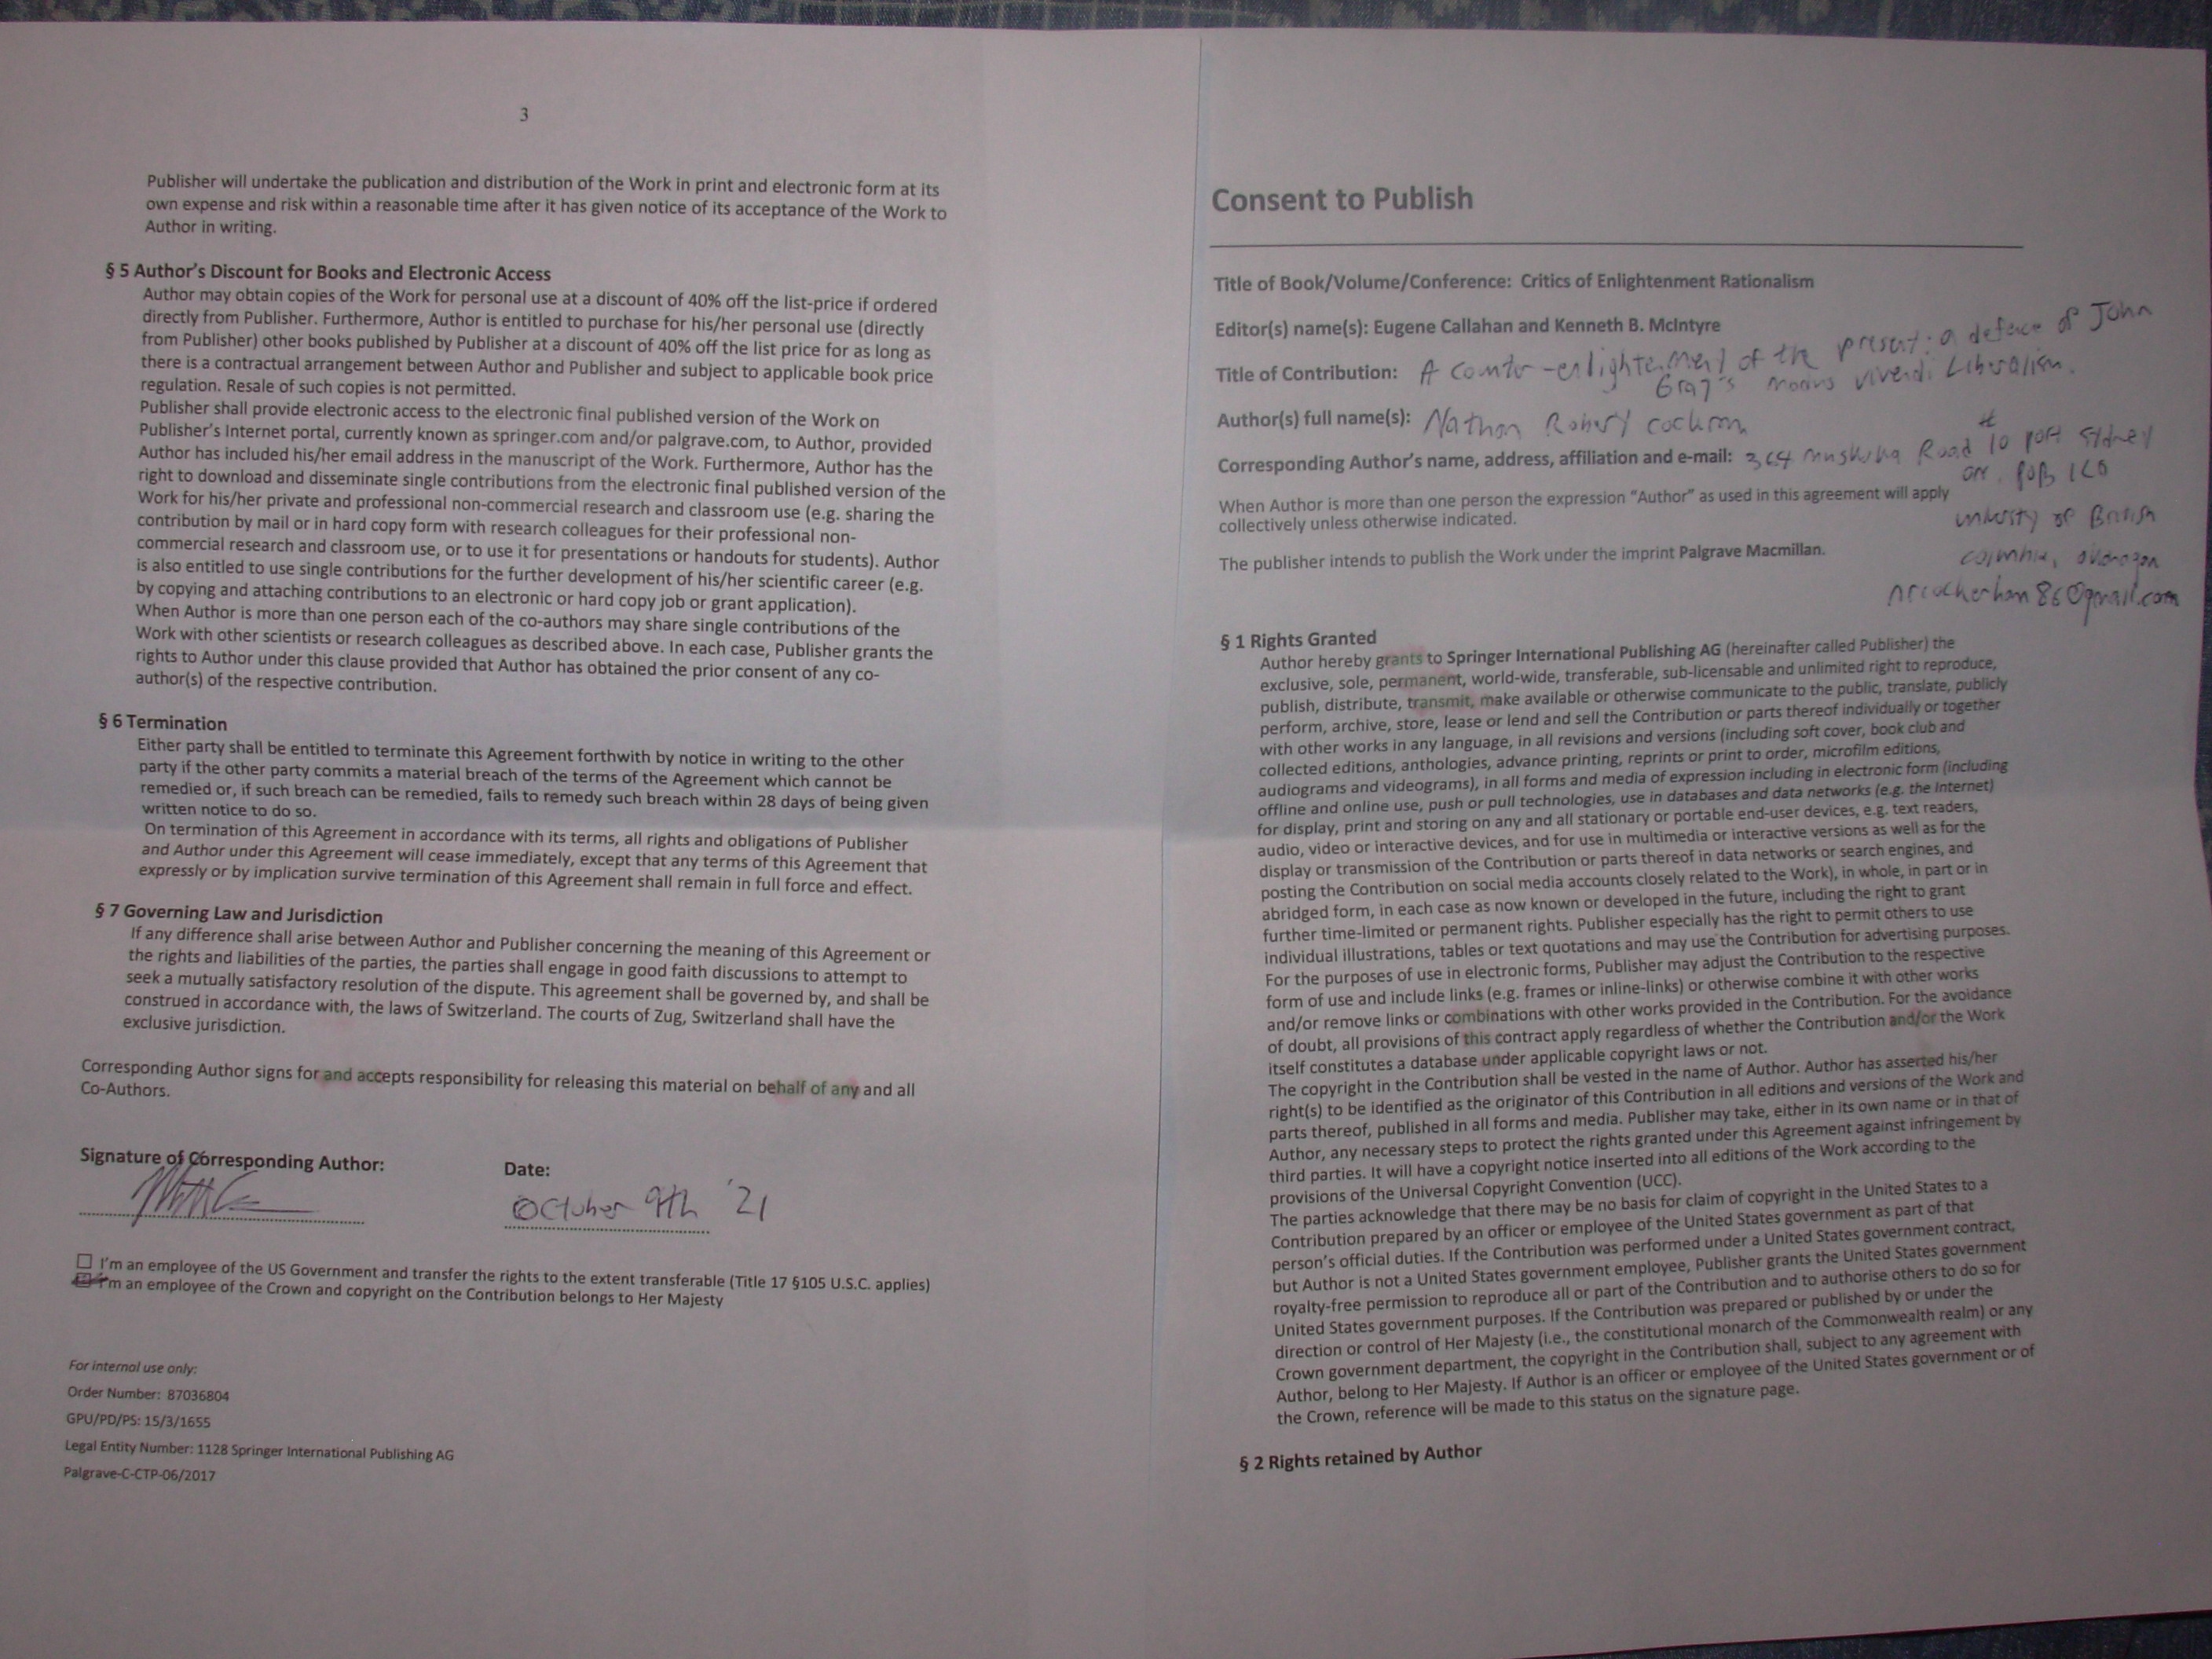 3
Publisher will undertake the publication and distribution of the Work in print and electronic form at its
own expense and risk within a reasonable time after it has given notice of its acceptance of the Work to
Author in writing.
§ 5 Author's Discount for Books and Electronic Access
Author may obtain copies of the Work for personal use at a discount of 40% off the list-price if ordered
directly from Publisher. Furthermore, Author is entitled to purchase for his/her personal use (directly
from Publisher) other books published by Publisher at a discount of 40% off the list price for as long as
there is a contractual arrangement between Author and Publisher and subject to applicable book price
regulation. Resale of such copies is not permitted.
Publisher shall provide electronic access to the electronic final published version of the Work on
Publisher's Internet portal, currently known as springer.com and/or palgrave.com, to Author, provided
Author has included his/her email address in the manuscript of the Work. Furthermore, Author has the
right to download and disseminate single contributions from the electronic final published version of the
Work for his/her private and professional non-commercial research and classroom use (e.g. sharing the
contribution by mail or in hard copy form with research colleagues for their professional non-
commercial research and classroom use, or to use it for presentations or handouts for students). Author
is also entitled to use single contributions for the further development of his/her scientific career (e.g.
by copying and attaching contributions to an electronic or hard copy job or grant application).
When Author is more than one person each of the co-authors may share single contributions of the
Work with other scientists or research colleagues as described above. In each case, Publisher grants the
rights to Author under this clause provided that Author has obtained the prior consent of any co-
author(s) of the respective contribution.
§ 6 Termination
Either party shall be entitled to terminate this Agreement forthwith by notice in writing to the other
party if the other party commits a material breach of the terms of the Agreement which cannot be
remedied or, if such breach can be remedied, fails to remedy such breach within 28 days of being given
written notice to do so.
On termination of this Agreement in accordance with its terms, all rights and obligations of Publisher
and Author under this Agreement will cease immediately, except that any terms of this Agreement that
expressly or by implication survive termination of this Agreement shall remain in full force and effect.
§ 7 Governing Law and Jurisdiction
If any difference shall arise between Author and Publisher concerning the meaning of this Agreement or
the rights and liabilities of the parties, the parties shall engage in good faith discussions to attempt to
seek a mutually satisfactory resolution of the dispute. This agreement shall be governed by, and shall be
construed in accordance with, the laws of Switzerland. The courts of Zug, Switzerland shall have the
exclusive jurisdiction.
Corresponding Author signs for and accepts responsibility for releasing this material on behalf of any and all
Co-Authors.
Signature of Corresponding Author:
Date:
October 9th '21
I'm an employee of the US Government and transfer the rights to the extent transferable (Title 17 §105 U.S.C. applies)
I'm an employee of the Crown and copyright on the Contribution belongs to Her Majesty
For internal use only:
Order Number: 87036804
GPU/PD/PS: 15/3/1655
Legal Entity Number: 1128 Springer International Publishing AG
Palgrave-C-CTP-06/2017
Consent to Publish
Title of Book/Volume/Conference: Critics of Enlightenment Rationalism
Editor(s) name(s): Eugene Callahan and Kenneth B. McIntyre
Title of Contribution: A of the present: a defence of John
Gray's modus vivendi Liberalism.
Author(s) full name(s): Nathan Robert
Corresponding Author's name, address, affiliation and e-mail: 364 Muskoka Road # 10 port Sydney
on. P0B 1L0
When Author is more than one person the expression "Author" as used in this agreement will apply
collectively unless otherwise indicated.
of British
The publisher intends to publish the Work under the imprint Palgrave Macmillan.
§ 1 Rights Granted
Author hereby grants to Springer International Publishing AG (hereinafter called Publisher) the
exclusive, sole, permanent, world-wide, transferable, sub-licensable and unlimited right to reproduce,
publish, distribute, transmit, make available or otherwise communicate to the public, translate, publicly
perform, archive, store, lease or lend and sell the Contribution or parts thereof individually or together
with other works in any language, in all revisions and versions (including soft cover, book club and
collected editions, anthologies, advance printing, reprints or print to order, microfilm editions,
audiograms and videograms), in all forms and media of expression including in electronic form (including
offline and online use, push or pull technologies, use in databases and data networks (e.g. the Internet)
for display, print and storing on any and all stationary or portable end-user devices, e.g. text readers,
audio, video or interactive devices, and for use in multimedia or interactive versions as well as for the
display or transmission of the Contribution or parts thereof in data networks or search engines, and
posting the Contribution on social media accounts closely related to the Work), in whole, in part or in
abridged form, in each case as now known or developed in the future, including the right to grant
further time-limited or permanent rights. Publisher especially has the right to permit others to use
individual illustrations, tables or text quotations and may use the Contribution for advertising purposes.
For the purposes of use in electronic forms, Publisher may adjust the Contribution to the respective
form of use and include links (e.g. frames or inline-links) or otherwise combine it with other works
and/or remove links or combinations with other works provided in the Contribution. For the avoidance
of doubt, all provisions of this contract apply regardless of whether the Contribution and/or the Work
itself constitutes a database under applicable copyright laws or not.
The copyright in the Contribution shall be vested in the name of Author. Author has asserted his/her
right(s) to be identified as the originator of this Contribution in all editions and versions of the Work and
parts thereof, published in all forms and media. Publisher may take, either in its own name or in that of
Author, any necessary steps to protect the rights granted under this Agreement against infringement by
third parties. It will have a copyright notice inserted into all editions of the Work according to the
provisions of the Universal Copyright Convention (UCC).
The parties acknowledge that there may be no basis for claim of copyright in the United States to a
Contribution prepared by an officer or employee of the United States government as part of that
person's official duties. If the Contribution was performed under a United States government contract,
but Author is not a United States government employee, Publisher grants the United States government
royalty-free permission to reproduce all or part of the Contribution and to authorise others to do so for
United States government purposes. If the Contribution was prepared or published by or under the
direction or control of Her Majesty (i.e., the constitutional monarch of the Commonwealth realm) or any
Crown government department, the copyright in the Contribution shall, subject to any agreement with
Author, belong to Her Majesty. If Author is an officer or employee of the United States government or of
the Crown, reference will be made to this status on the signature page.
§ 2 Rights retained by Author